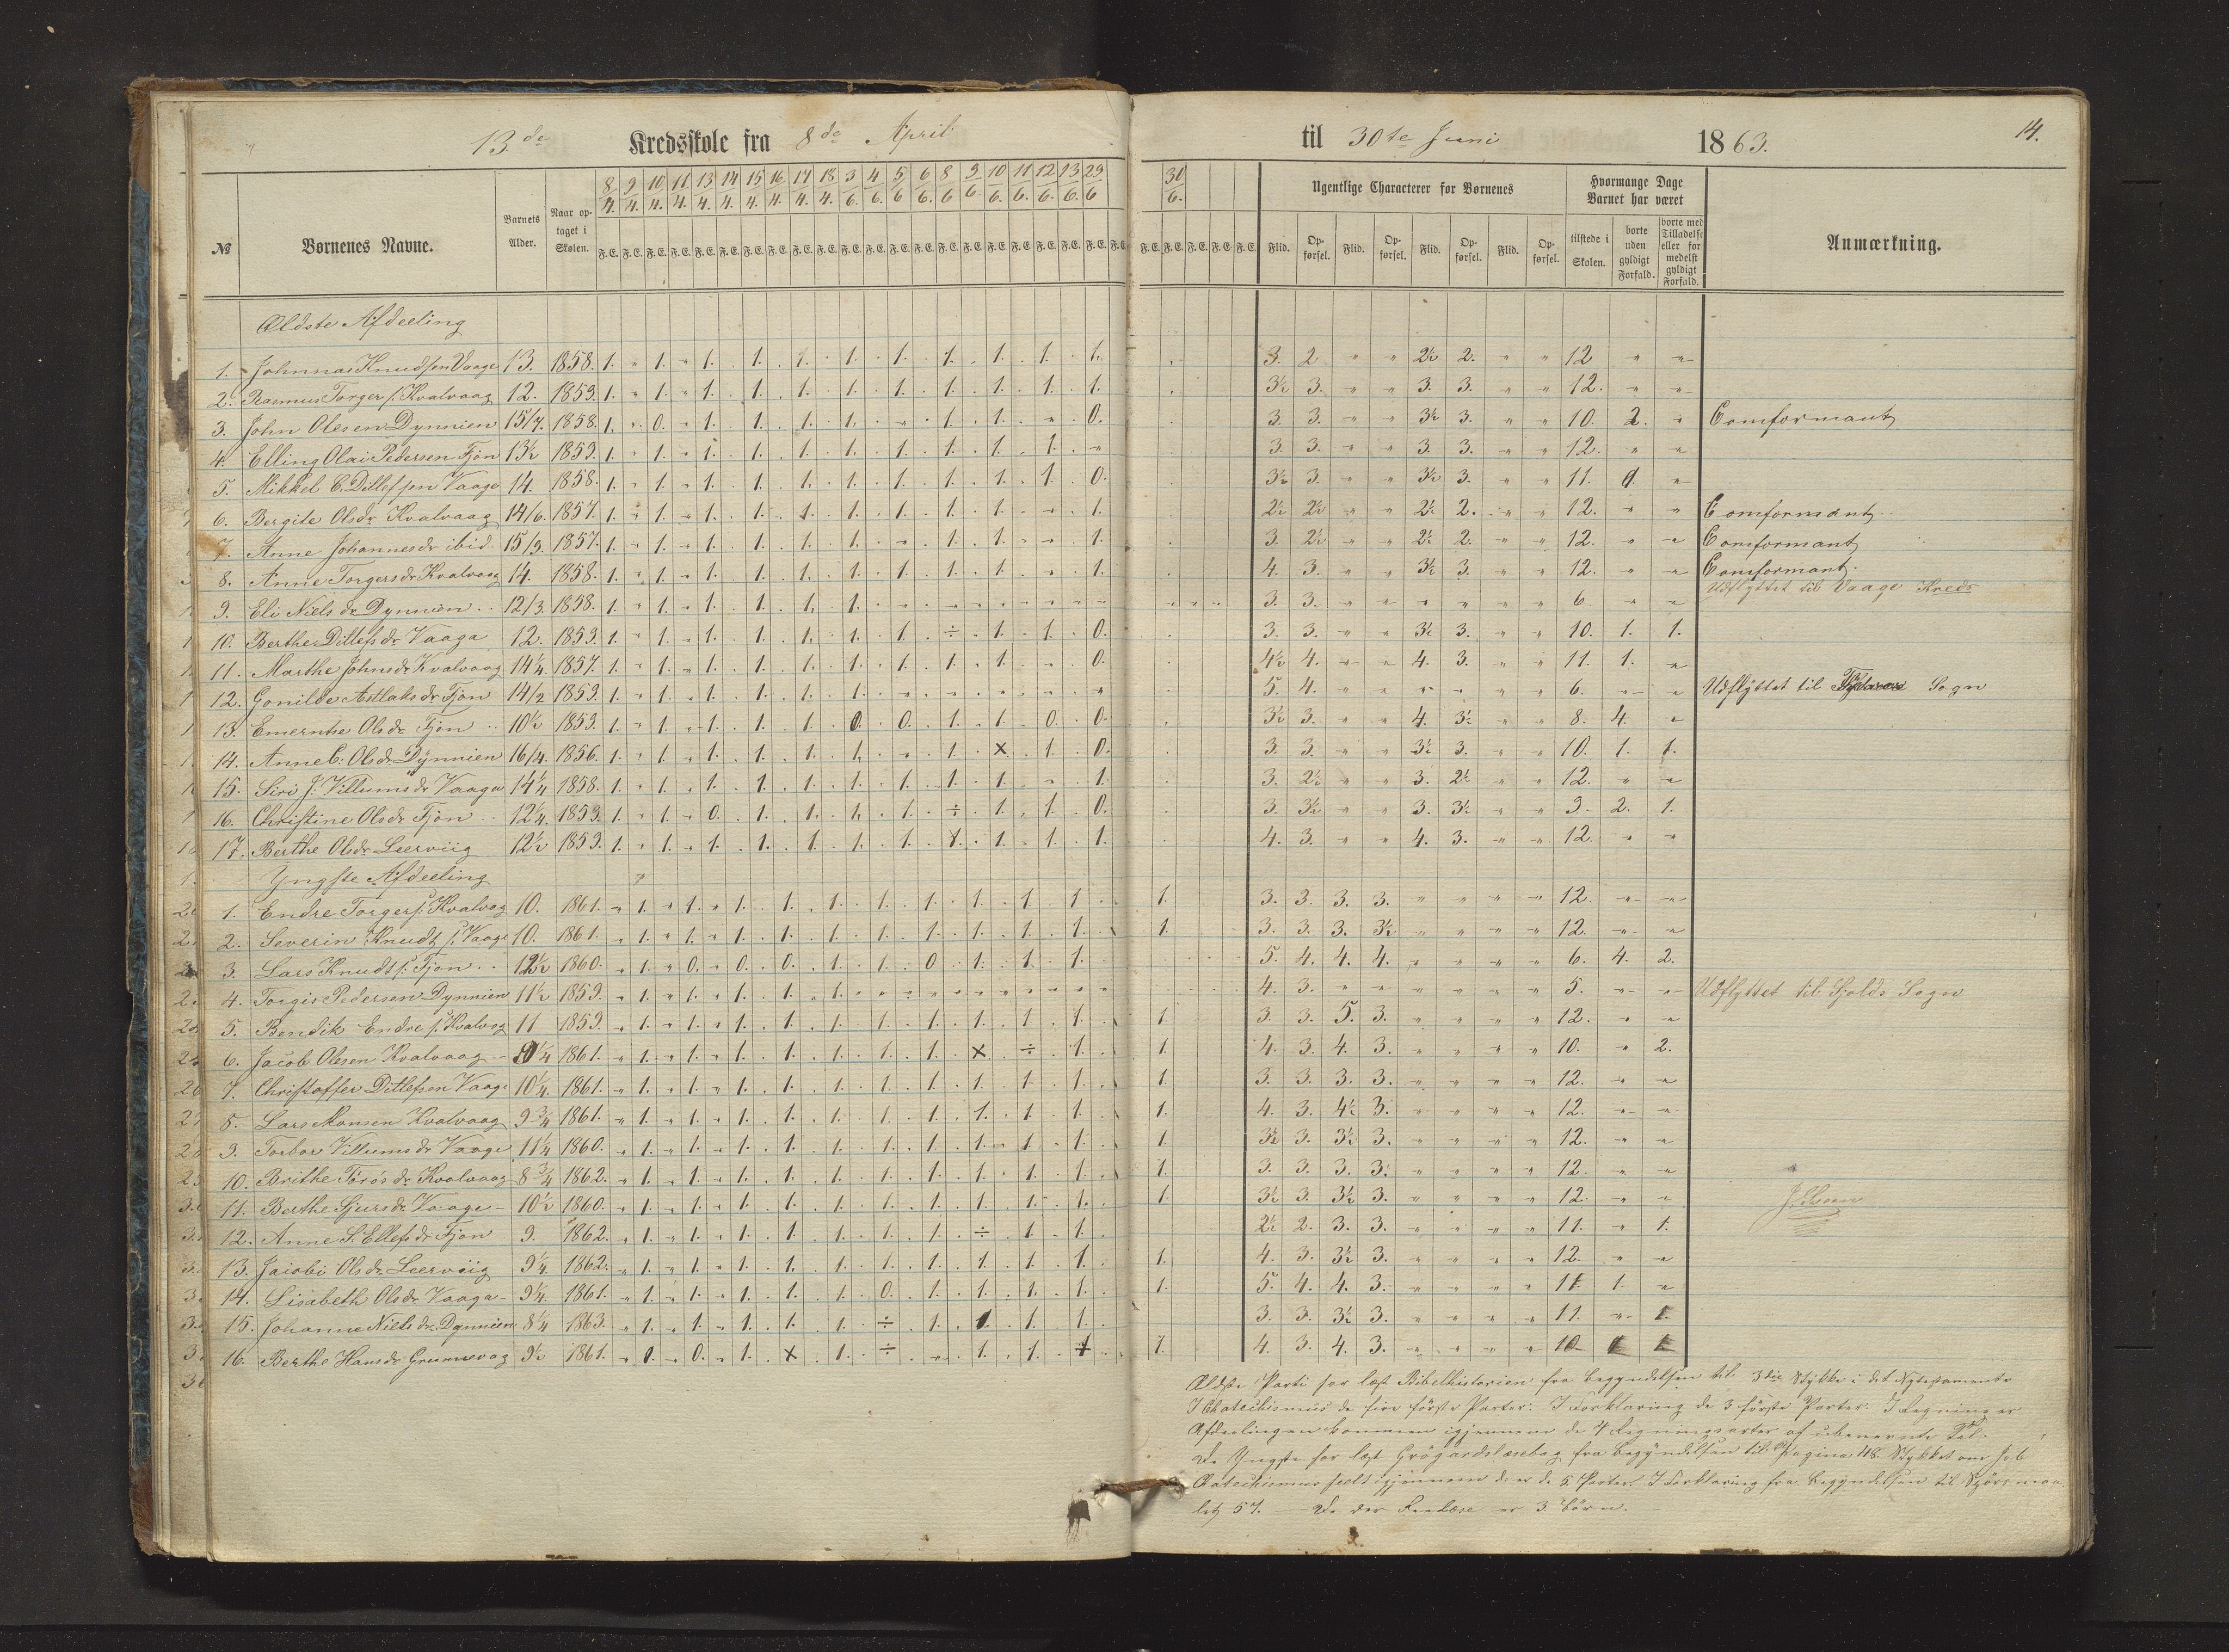 13de Kredsskole fra 8de April til 30te Juni 1863. 14.
№ Børnenes Navne. Barnets Alder. Naar optaget i Skolen. 8/4. 9/4. 10/4. 11/4. 13/4. 14/4. 15/4. 16/4. 17/4. 18/4. 3/6. 4/6. 5/6 6/6. 8/6 9/6 10/6. 11/6. 12/6. 13/6. 29/6 30/6. F.E. Ugentlige Characterer for Børnenes Flid. Opførsel. Flid. Opførsel. Flid. Opførsel. Flid. Opførsel. Hvormange Dage Barnet har været tilstede i Skolen. borte uden gyldigt Forfald. borte med Tilladelse eller formedelst gyldigt Forfald. Anmærkning.
Ældste Afdeeling
1. Johnnas Knudsen Vaage 13. 1858. 1. " 1. " 1. 1. 1. 1. 1. 1. 1. 1. 1. 3. 2 " " 2½ 2. " " 12 " "
2. Rasmus Torgers. Kvalvaag 12. 1859. 1. " 1. " 1. 1. 1. 1. 1. 1. 1. 1. 1. 3½ 3. " " 3. 3. " " 12. " "
3. John Olesen Dynnien 15/7. 1858. 1. " 0. " 1. 1. 1. 1. " 1. 1. " 0. 3. 3. " " 3½ 3. " " 10. 2. " Comformant
4. Elling Olai Pedersen Fjøn 13½ 1859. 1. " 1. " 1. 1. 1. 1. 1. 1. 1. 1. " 3. 3. " " 3. 3. " " 12. " "
5. Mikkel C. Ditlefsen Vaage 14. 1858. 1. " 1. " 1. 1. 1. 1. 1. 1. 1. 1. 0. 3½ 3. " " 3½ 3. " " 11. 1 "
6. Bergite Olsdr Kvalvaag 14/6. 1857. 1. " 1. " 1. 1. 1. 1. 1. 1. 1. " 1. 2½ 2½ " " 2½ 2. " " 12. " " Comformant
7. Anne Johannesdr ibid 15/9. 1857. 1. " 1. " 1. 1. 1. 1. " 1. 1. " 1. 3. 2½ " " 2½ 2. " " 12. " " Comformant
8. Anne Torgersdr Kvalvaag 14. 1858. 1. " 1. " 1. 1. 1. 1. 1. 1. 1. " 1. 4. 3. " " 3½ 3. " " 12. " " Comformant.
9. Eli Nielsdr Dynnien 12/3. 1858. 1. " 1. " 1. 1. 1. 1. " " " " " 3. 3. " " " " " " 6. " " Udflyttet til Vaage Kreds
10. Berthe Ditlefsdr Vaaga 12. 1859. 1. " 1. " 1. 1. 1. 1. 1. ÷ 1. 1. 0. 3. 3. " " 3½ 3. " " 10. 1. 1.
11. Marthe Johnsdr Kvalvaag 14¼ 1857. 1. " 1. " 1. 1. 1. 1. 1. 1. 1. " 0. 4½ 4. " " 4. 3. " " 11. 1. "
12. Gonilde Astlaksdr Fjøn 14/2 1859. 1. " 1. " 1. 1. 1. 1. " " " " " 5. 4. " " " " " " 6. " " Udflyttet til Sogn
13. Emernthe Olsdr Fjøn 10½ 1859. 1. " 1. " 1. 1. 1. 0. 0. 1. 1. 0. 0. 3½ 3. " " 4. 3½ " " 8. 4. "
14. Anne C. Olsdr Dynnien 16/4. 1856. 1. " 1. " 1. 1. 1. 1. " 1. X 1. 0. 3. 3. " " 3½ 3. " " 10. 1. 1.
15. Siri J. Villumsdr Vaaga 14¼ 1858. 1. " 1. " 1. 1. 1. 1. 1. 1. 1. " 1. 3. 2½ " " 3. 2½ " " 12. " "
16. Christine Olsdr Fjøn 12¼. 1859. 1. " 1. " 0. 1. 1. 1. 1. ÷ 1. 1. 0. 3. 3½ " " 3. 3½ " " 9. 2. 1.
17. Berthe Olsdr Leerviig 12½ 1859. 1. " 1. " 1. 1. 1. 1. 1. 1. 1. 1. 1. 4. 3. " " 4. 3. " " 12. " "
Yngste Afdeeling
1. Endre Torgers. Kvalvog 10. 1861. " 1. " 1. " 1. 1. 1. 1. 1. 1. 1. 1. 1. 3. 3. 3. 3. " " " " 12. " "
2. Severin Knudts. Vaage 10. 1861. " 1. " 1. " 1. 1. 1. 1. 1. 1. 1. 1. 1. 3. 3. 3. 3½ " " " " 12. " "
3. Lars Knudts. Fjøn 12½ 1860. " 1. " 0. " 0. 0. 1. 1. 0 1. 1. 1. 5. 4. 4. 4. " " " " 6. 4. 2.
4. Torgis Pedersen Dynnien 11½ 1859. " 1. " 1. " 1. 1. 1. " " " " " 4. 3. " " " " " " 5. " " Udflyttet til Sjolds Sogn
5. Bendik Endres. Kvalvog 11 1859. " 1. " 1. " 1. 1. 1. 1. 1. 1. 1. 1. 1. 3. 3. 5. 3. " " " " 12. " "
6. Jacob Olesen Kvalvaag 1861. " 1. " 1. " 1. 1. 1. 1. 1. X ÷ 1. 1. 4. 3. 4. 3. " " " " 10. " 2.
7. Christoffer Ditlefsen Vaage 10¼. 1861. " 1. " 1. " 1. 1. 1. 1. 1. 1. 1. 1. 1. 3. 3. 3. 3. " " " " 12. " "
8. Lars Monsen Kvalvaag 9¾ 1861. " 1. " 1. " 1. 1. 1. 1. 1. 1. 1. 1. 1. 4. 3. 4½ 3. " " " " 12. " "
9. Torbor Villumsdr Vaage 11¼ 1860. " 1. " 1. " 1. 1. 1. 1. 1. 1. 1. 1. 1. 3½ 3. 3½ 3. " " " " 12. " "
10. Brithe Torøsdr Kvalvaag 8¾ 1862. " 1. " 1. " 1. 1. 1. 1. 1. 1. 1. 1. 1. 3. 3. 3. 3. " " " " 12. " "
11. Berthe Sjursdr Vaage 10½ 1860. " 1. " 1. " 1. 1. 1. 1. 1. 1. 1. 1. 1. 3½ 3. 3½ 3. " " " " 12. " "
12. Anne S. Ellefsdr Fjøn 9. 1862. " 1. " 1. " 1. 1. 1. 1. 1. ÷ 1. 1. 2½ 2. 3. 3. " " " " 11. " 1.
13. Jaiobi Olsdr Leerviig 9¼ 1862. " 1. " 1. " 1. 1. 1. 1. 1. 1. 1. 1. 1. 4. 3. 3½ 3. " " " " 12. " "
14. Lisabeth Olsdr Vaaga 9¼. 1861. " 1. " 1. " 1. 1. 1. 0. 1. 1. 1. 1. 1. 5. 4. 4. 3. " " " " 11. 1. "
15. Johanne Nielsdr Dynnien 8¼ 1863. " 1. " 1. " 1. 1. 1. ÷ 1. 1. 1. 1. 3. 3. 3½ 3. " " " " 11. " 1.
16. Berthe Hansdr Grunnevog 9½ 1861. " 1. " 0. " 1. X 1. ÷ " 1. 1. 1. 4. 3. 4. 3. " " " " 10 1 1
Ældste Parti har læst Bibelhistorien fra begyndelsen til 3die Stykke i det Nytestamente
I Chatechismus de fire første Parter. I Forklaring de 3 første Parter. I Regning er
Afdeelingen kommen igjennem de 4 Regningsarter af ubenevnte Tal.
De Yngste har læst Grøgaards læsebog fra begyndelsen til Pagina 48 Stykket om Job
Catechismus heelt igjennem d.er de 5 Parter. I Forklaring fra begyndelsen til Spørsmaa
let 57. De der Fralæse er 3 børn.